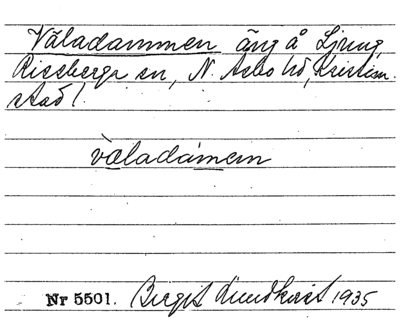 Våladammen äng å Ljung,
Riseberga sn, N. Åsbo hd, Kristian-
stad l.
våladamemn
Nr 5501. Birgit Lundkvist 1935